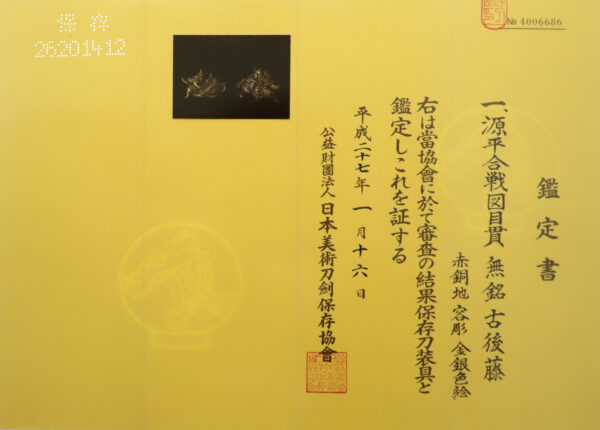 鑑定書
一、源平合戦図目貫 無銘 古後藤
赤銅地 容彫 金銀色絵
右は當協會に於て審査の結果保存刀装具と
鑑定しこれを証する
平成二十七年一月十六日
公益財團法人 日本美術刀劍保存協會
№ 4006686
保存
26201412